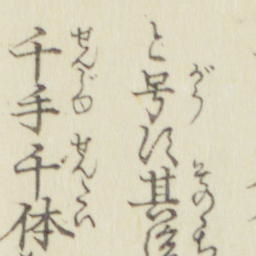 と号す其後
がう そのゝち
千手千体
せんじゆ せんたい